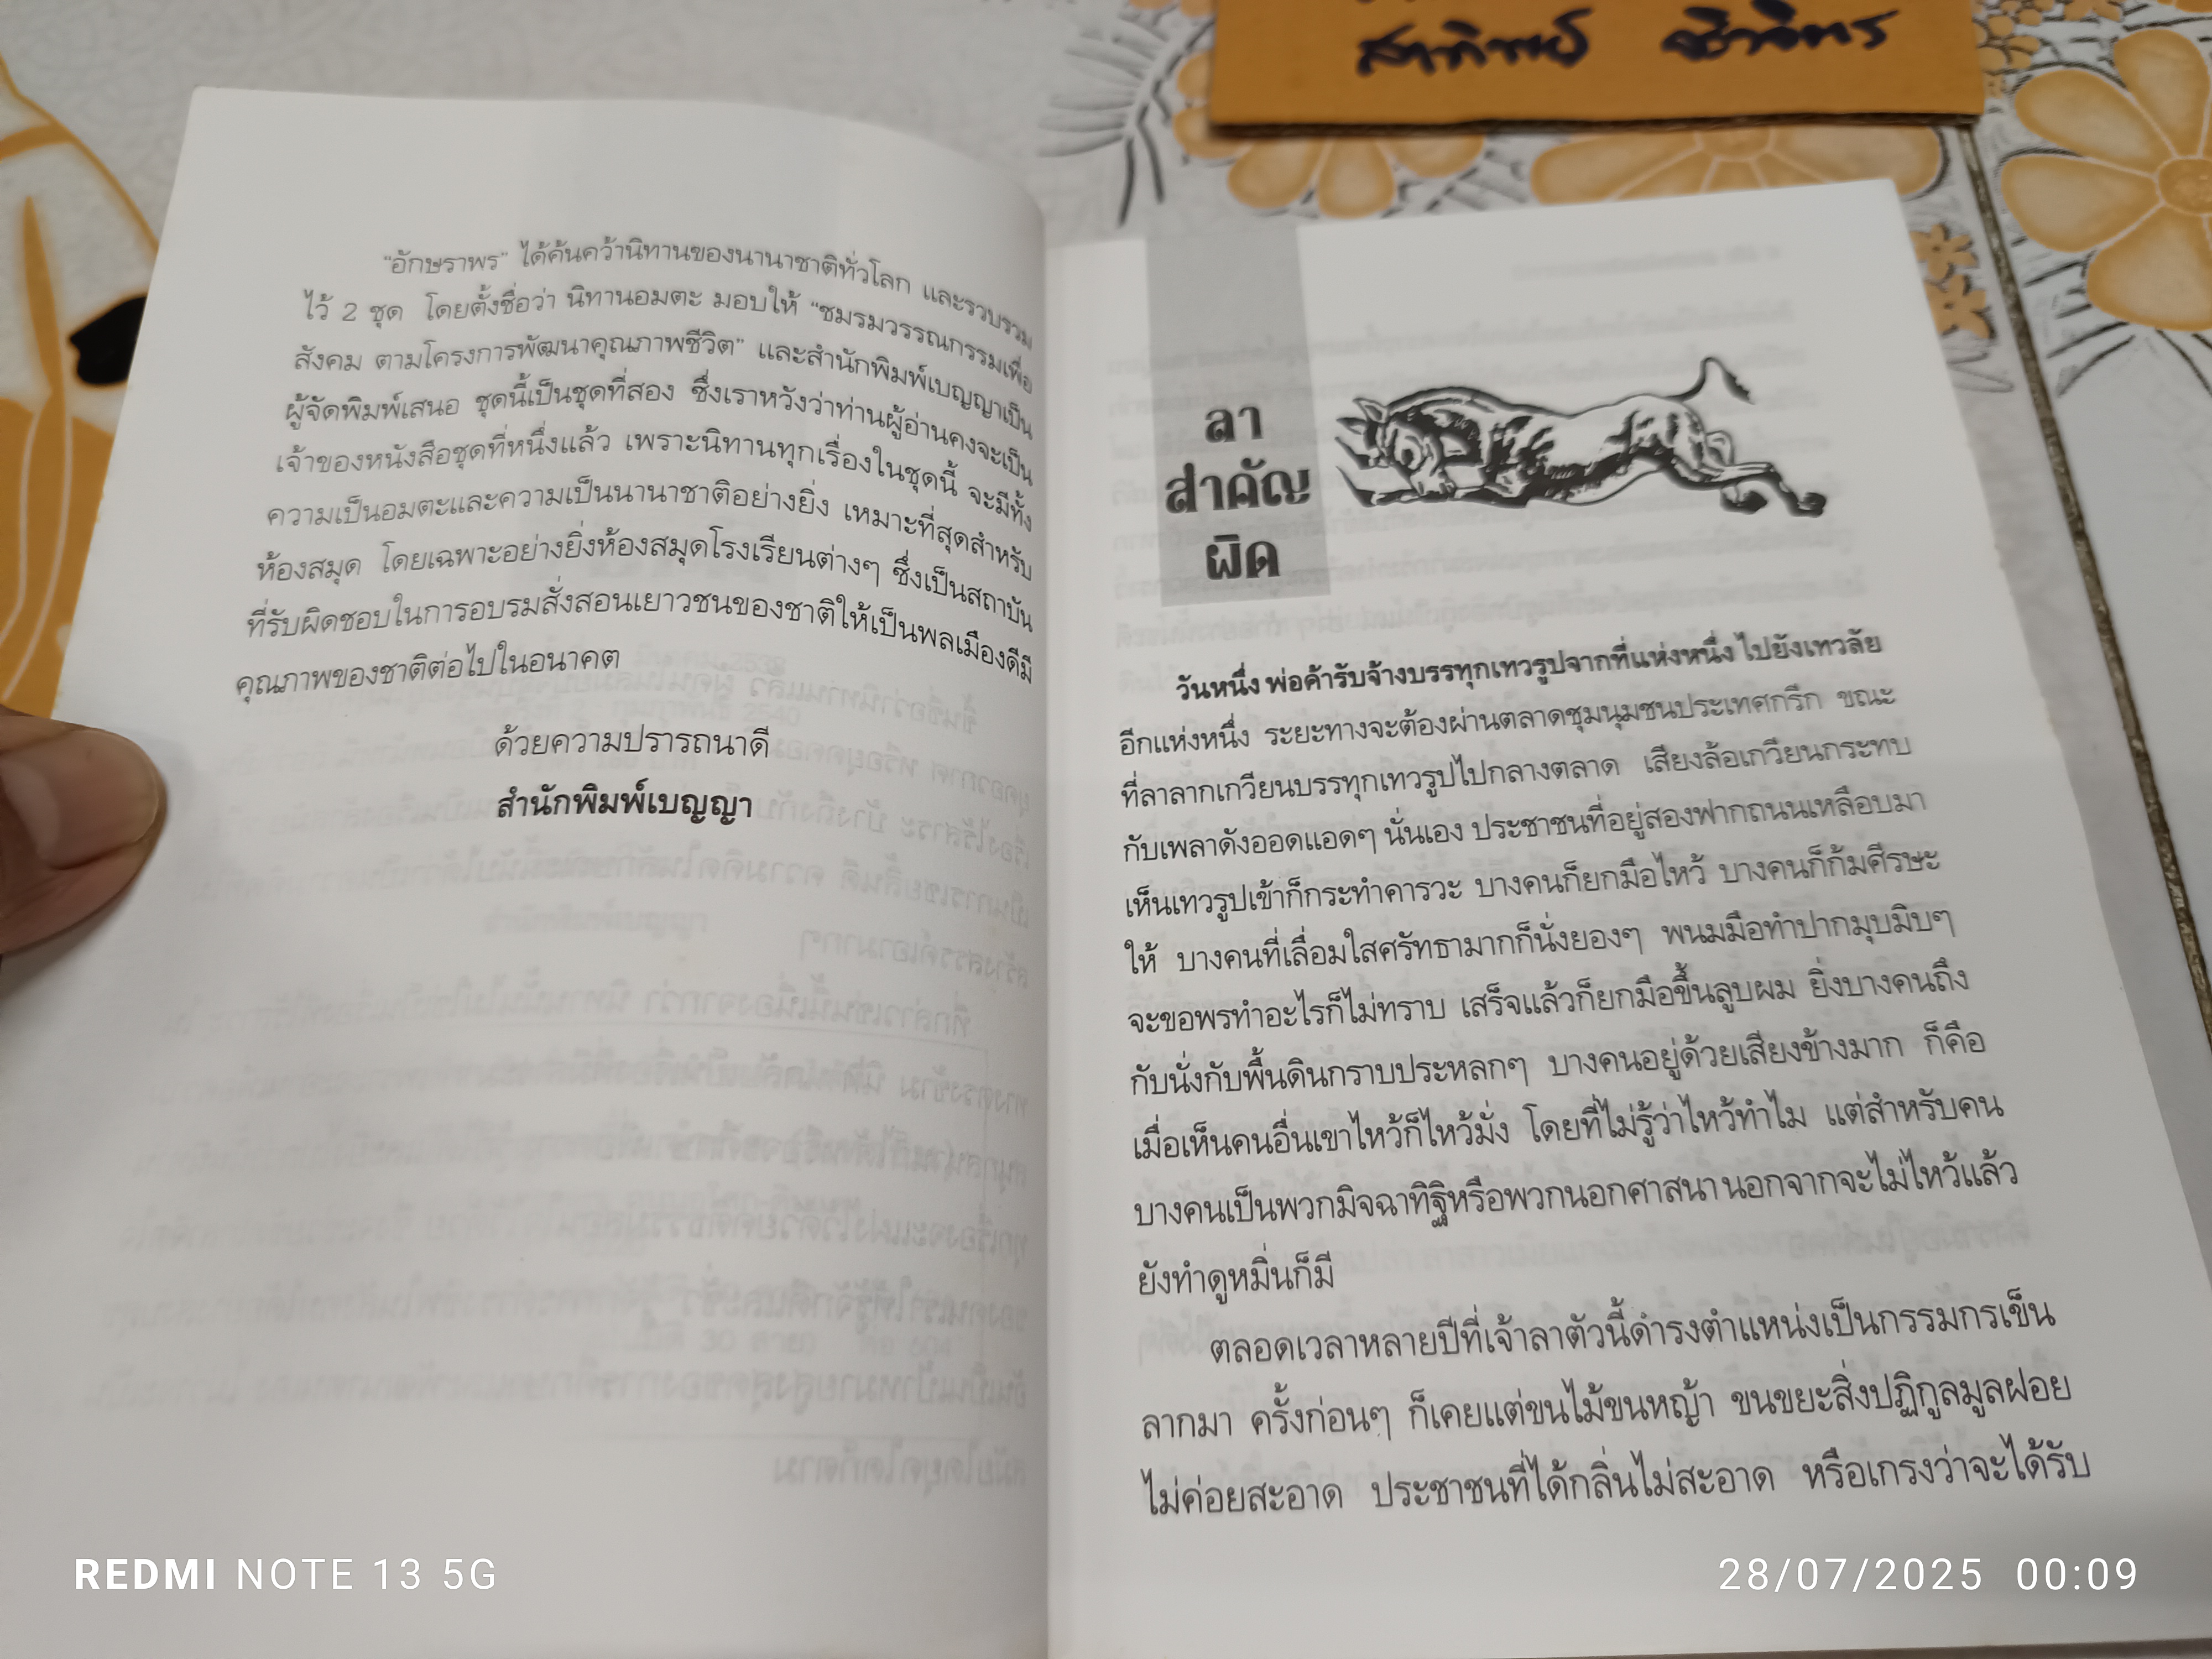 "อักษราพร" ได้ค้นคว้านิทานของนานาชาติทั่วโลก และรวบรวม
ไว้ 2 ชุด โดยตั้งชื่อว่า นิทานอมตะ มอบให้ "ชมรมวรรณกรรมเพื่อ
สังคม ตามโครงการพัฒนาคุณภาพชีวิต" และสำนักพิมพ์เบญญาเป็น
ผู้จัดพิมพ์เสนอ ชุดนี้เป็นชุดที่สอง ซึ่งเราหวังว่าท่านผู้อ่านคงจะเป็น
เจ้าของหนังสือชุดที่หนึ่งแล้ว เพราะนิทานทุกเรื่องในชุดนี้ จะมีทั้ง
ความเป็นอมตะและความเป็นนานาชาติอย่างยิ่ง เหมาะที่สุดสำหรับ
ห้องสมุด โดยเฉพาะอย่างยิ่งห้องสมุดโรงเรียนต่างๆ ซึ่งเป็นสถาบัน
ที่รับผิดชอบในการอบรมสั่งสอนเยาวชนของชาติให้เป็นพลเมืองดีมี
คุณภาพของชาติต่อไปในอนาคต
ด้วยความปรารถนาดี
สำนักพิมพ์เบญญา
ลา
สำคัญ
ผิด
วันหนึ่ง พ่อค้ารับจ้างบรรทุกเทวรูปจากที่แห่งหนึ่ง ไปยังเทวลัย
อีกแห่งหนึ่ง ระยะทางจะต้องผ่านตลาดชุมนุมชนประเทศกรีก ขณะ
ที่ลาลากเกวียนบรรทุกเทวรูปไปกลางตลาด เสียงล้อเกวียนกระทบ
กับเพลาดังออดแอดๆ นั่นเอง ประชาชนที่อยู่สองฟากถนนเหลือบมา
เห็นเทวรูปเข้าก็กระทำคารวะ บางคนก็ยกมือไหว้ บางคนก็ก้มศีรษะ
ให้ บางคนที่เลื่อมใสศรัทธามากก็นั่งยองๆ พนมมือทำปากมุบมิบๆ
จะขอพรทำอะไรก็ไม่ทราบ เสร็จแล้วก็ยกมือขึ้นลูบผม ยิ่งบางคนถึง
กับนั่งกับพื้นดินกราบประหลกๆ บางคนอยู่ด้วยเสียงข้างมาก ก็คือ
เมื่อเห็นคนอื่นเขาไหว้ก็ไหว้มั่ง โดยที่ไม่รู้ว่าไหว้ทำไม แต่สำหรับคน
บางคนเป็นพวกมิจฉาทิฐิหรือพวกนอกศาสนา นอกจากจะไม่ไหว้แล้ว
ยังทำดูหมิ่นก็มี
ตลอดเวลาหลายปีที่เจ้าลาตัวนี้ดำรงตำแหน่งเป็นกรรมกรเข็น
ลากมา ครั้งก่อนๆ ก็เคยแต่ขนไม้ขนหญ้า ขนขยะสิ่งปฏิกูลมูลฝอย
ไม่ค่อยสะอาด ประชาชนที่ได้กลิ่นไม่สะอาด หรือเกรงว่าจะได้รับ
REDMI NOTE 13 5G
28/07/2025 00:09